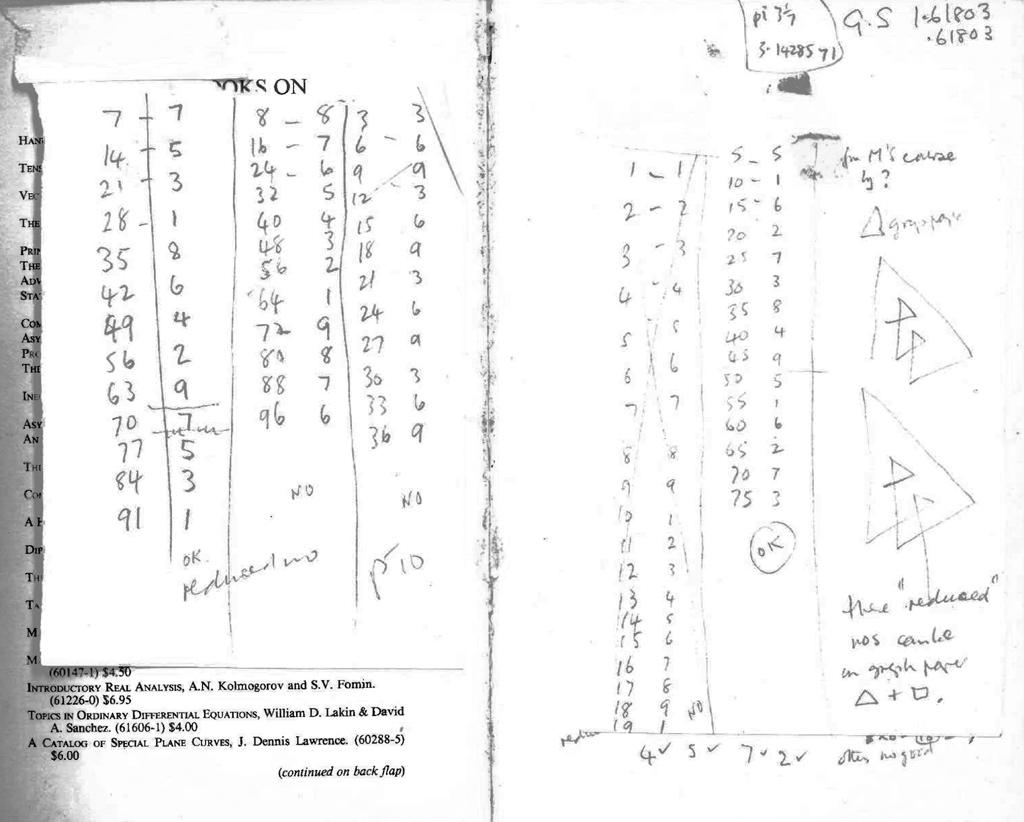 OOKS ON
HAN
TENS
VEC
THE
PRIN
THE
ADV
STA
COM
ASY
PRO
THE
INE
ASY
AN
THE
CON
A H
DIF
THE
TA
M
M
7 - 7
14 - 5
21 - 3
28 - 1
35 8
42 6
49 4
56 2
63 9
70 7
77 5
84 3
91 1
OK.
reduced no
8 - 8
16 - 7
24 - 6
32 5
40 4
48 3
56 2
64 1
72 9
80 8
88 7
96 6
NO
3 3
6 - 6
9 9
12 3
15 6
18 9
21 3
24 6
27 9
30 3
33 6
36 9
NO
p 10
(60147-1) $4.50
INTRODUCTORY REAL ANALYSIS, A.N. Kolmogorov and S.V. Fomin.
(61226-0) $6.95
TOPICS IN ORDINARY DIFFERENTIAL EQUATIONS, William D. Lakin & David
A. Sanchez. (61606-1) $4.00
A CATALOG OF SPECIAL PLANE CURVES, J. Dennis Lawrence. (60288-5)
$6.00
(continued on back flap)
pi 3 1/7
3.1428571
G.S 1.61803
.61803
1 - 1
2 - 2
3 - 3
4 - 4
5 5
6 6
7 7
8 8
9 9
10 1
11 2
12 3
13 4
14 5
15 6
16 7
17 8
18 9
19 1
NO
5 - 5
10 - 1
15 - 6
20 2
25 7
30 3
35 8
40 4
45 9
50 5
55 1
60 6
65 2
70 7
75 3
OK
from M's course
by ?
△ graph paper
these "reduced"
nos can be
on graph paper
△ + □.
4 ✓ 5 ✓ 7 ✓ 2 ✓ others no good